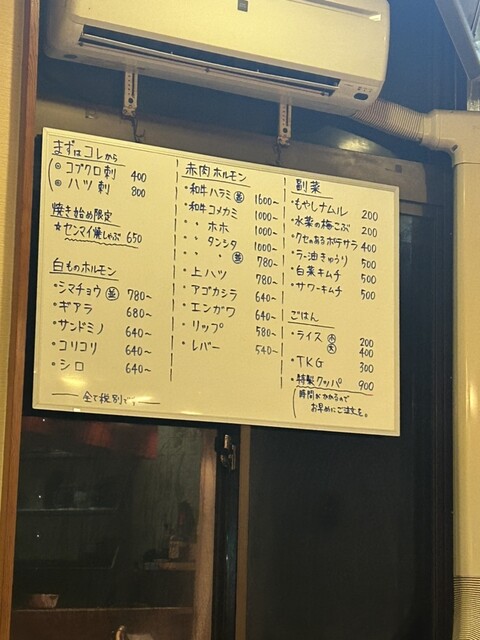 まずはコレから
◎ コブクロ刺 400
◎ ハツ刺 800
焼き始め限定
☆センマイ焼しゃぶ 650
白ものホルモン
・シマチョウ 並 780~
・ギアラ 680~
・サンドミノ 640~
・コリコリ 640~
・シロ 640~
全て税別です
赤肉ホルモン
・和牛ハラミ 並 1600~
・和牛コメカミ 1000~
・〃 ホホ 1000~
・〃 タンシタ 1000~
・〃 〃 並 780~
・上ハツ 780~
・アゴカシラ 640~
・エンガワ 640~
・リップ 580~
・レバー 540~
副菜
・もやしナムル 200
・水菜の梅こぶ 200
・クセのあるポテサラ 400
・ラー油きゅうり 500
・白菜キムチ 500
・サワーキムチ 500
ごはん
・ライス 小 200
大 400
・TKG 300
・特製クッパ 900
時間がかかるので
お早めにご注文を。